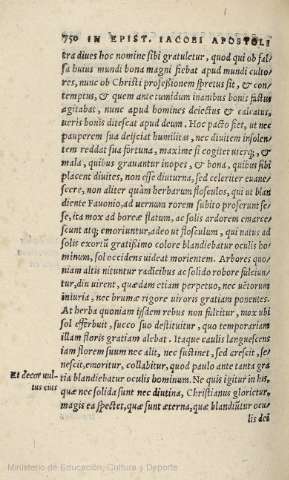 750 IN EPIST. IACOBI APOSTOLI
tra diues hoc nomine sibi gratuletur, quod qui ob fal-
sa huius mundi bona magni fiebat apud mundi culto-
res, nunc ob Christi professionem despretus sit, & con-
temptus, & quem ante tumidum inanibus bonis fastus
agitabat, nunc apud homines deiectus & calcatus,
ueris bonis ditescat apud deum. Hoc pacto fiet, ut nec
pauperem sua deijciat humilitas, nec diuitem insolen-
tem reddat sua fortuna, maxime si cogitet uterq;, &
mala, quibus grauantur inopes, & bona, quibus sibi
placent diuites, non esse diuturna, sed celeriter euane-
scere, non aliter quàm herbarum flosculos, qui ut blan
diente Fauonio, ad uernum rorem subito proferunt se-
se, ita mox ad boreæ flatum, ac solis ardorem emarce-
scunt atq; emoriuntur, adeo ut flosculum, qui natus ad
solis exortũ gratissimo colore blandiebatur oculis ho-
minum, sol occidens uideat morientem. Arbores quo-
niam altis nituntur radicibus ac solido robore fulciun-
tur, diu uirent, quædam etiam perpetuo, nec uẽtorum
iniuria, nec brumæ rigore uiroris gratiam ponentes.
At herba quoniam ijsdem rebus non fulcitur, mox ubi
sol efferbuit, succo suo destituitur, quo temporariam
illam floris gratiam alebat. Itaque caulis languescens
iam florem suum nec alit, nec sustinet, sed crescit, se-
nescit, emoritur, collabitur, quod paulo ante tanta gra
Et decor uul-
tus eius
tia blandiebatur oculis hominum. Ne quis igitur in his,
quæ nec solida sunt nec diutina, Christianus glorietur,
magis ea spectet, quæ sunt æterna, quæ blandiũtur ocu-
lis dei
Ministerio de Educación, Cultura y Deporte